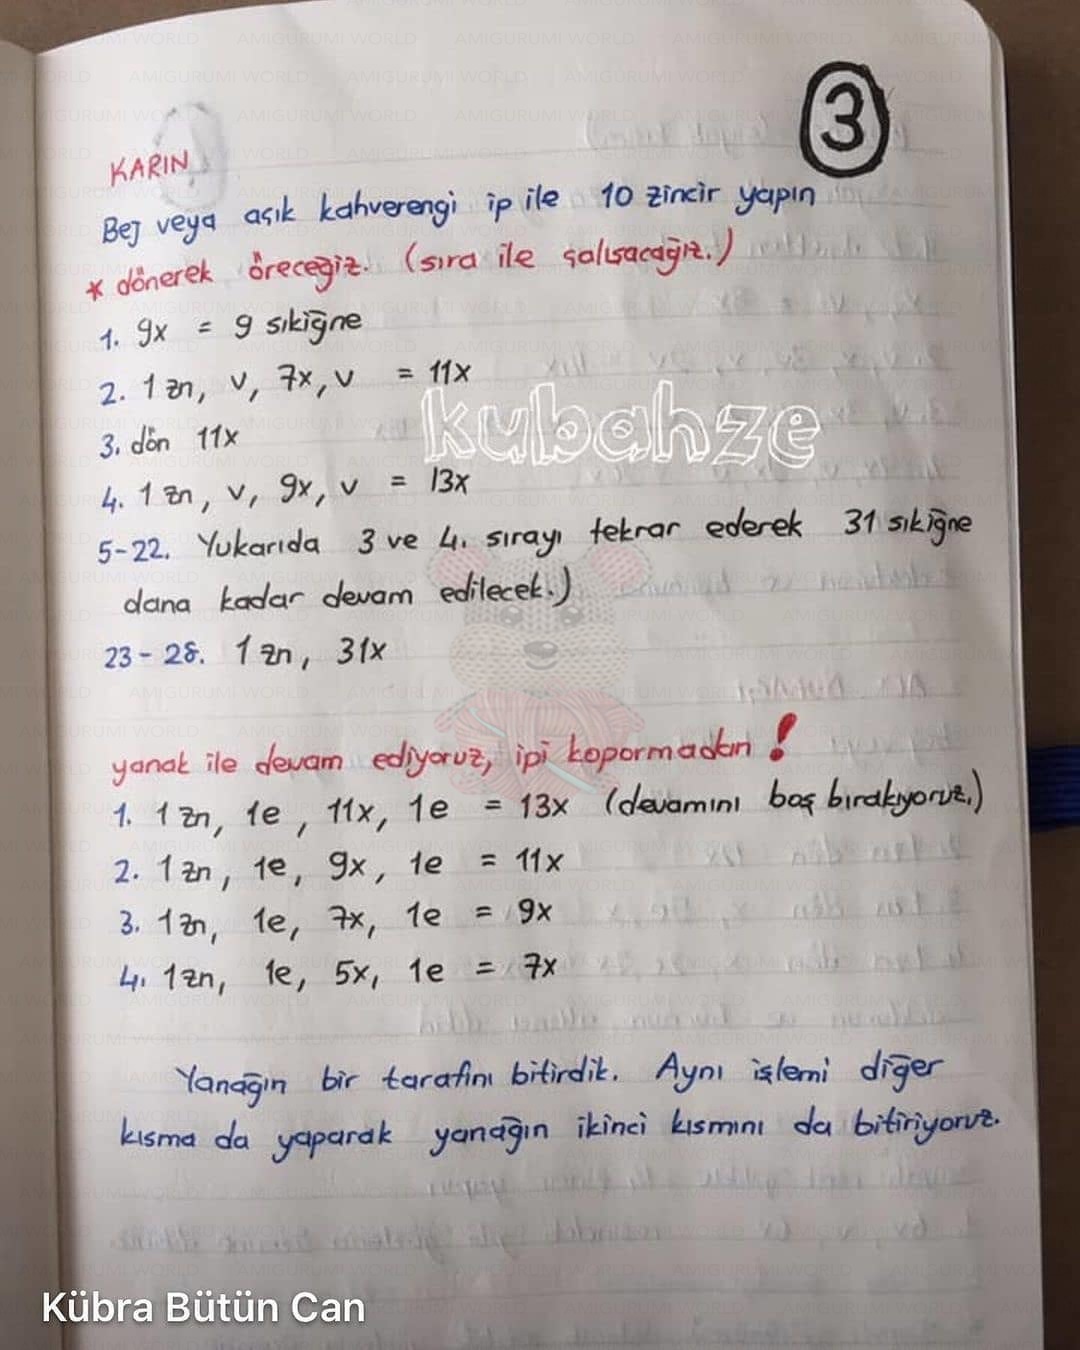 3
KARIN
Bej veya açık kahverengi ip ile 10 zincir yapın
* dönerek öreceğiz. (sıra ile çalışacağız.)
1. 9x = 9 sıkiğne
2. 1 zn, v, 7x, v = 11x
3. dön 11x
kubahze
4. 1 zn, v, 9x, v = 13x
5-22. Yukarıda 3 ve 4. sırayı tekrar ederek 31 sıkiğne
dana kadar devam edilecek.)
23 - 28. 1 zn, 31x
yanak ile devam ediyoruz, ipi kopormadan !
1. 1 zn, 1e, 11x, 1e = 13x (devamını boş bırakıyoruz.)
2. 1 zn, 1e, 9x, 1e = 11x
3. 1zn, 1e, 7x, 1e = 9x
4. 1zn, 1e, 5x, 1e = 7x
Yanağın bir tarafını bitirdik. Aynı işlemi diğer
kısma da yaparak yanağın ikinci kısmını da bitiriyoruz.
Kübra Bütün Can